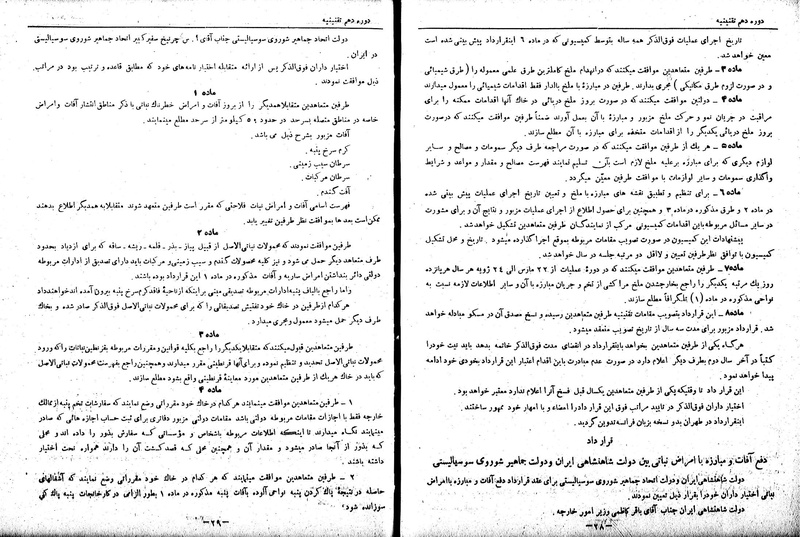 دوره دهم تقنینیه
تاریخ اجرای عملیات فوق‌الذکر همه ساله بتوسط کمیسیونی که در ماده ۶ اینقرارداد پیش بینی شده است
معین خواهد شد.
ماده ۳ – طرفین متعاهدین موافقت میکنند که درانهدام ملخ کاملترین طرق علمی معموله را (طرق شیمیائی
و در صورت لزوم طرق مکانیکی) مجری بدارند. طرفین در مبارزهٔ با ملخ بالدار فقط اقدامات شیمیائی را معمول میدارند
ماده ۴ – دولتین موافقت میکنند که در صورت بروز ملخ دریائی در خاک آنها اقدامات ممکنه را برای
مراقبت در جریان نمو و حرکت ملخ مزبور و مبارزهٔ با آن بعمل آورند ضمناً طرفین موافقت میکنند که درصورت
بروز ملخ دریائی یکدیگر را از اقدامات متخذه برای مبارزه با آن مطلع سازند.
ماده ۵ – هر یك از طرفین موافقت میکنند که در صورت مراجعه طرف دیگر سمومات و مصالح و سایر
لوازم دیگری که برای مبارزه برعلیه ملخ لازم است بآن تسلیم نمایند فهرست مصالح و مقدار و مواعد و شرایط
واگذاری سمومات و سایر لوازمات با موافقت طرفین معیّن میگردد.
ماده ۶ – برای تنظیم و تطبیق نقشه های مبارزهٔ با ملخ و تعیین تاریخ اجرای عملیات پیش بینی شده
در ماده ۲ و طرق مذکوره درماده ۳ و همچنین برای حصول اطلاع از اجرای عملیات مزبور و نتایج آن و برای مشورت
در سایر مسائل مربوطه باین اقدامات کمیسیونی مرکب از نمایندگان طرفین متعاهدین تشکیل خواهد شد.
پیشنهادات این کمیسیون در صورت تصویب مقامات مربوطه بموقع اجرا گذارده میشود. تاریخ و محل تشکیل
کمیسیون با توافق نظر طرفین تعیین و لااقل دو مرتبه جلسه در سال خواهد شد.
ماده ۷ – طرفین متعاهدین موافقت میکنند که در دورهٔ عملیات از ۲۲ مارس الی ۲۴ ژویه هر سال هر پانزده
روز یك مرتبه یکدیگر را راجع بخارج‌شدن ملخ مراکشی از تخم و جریان مبارزه با آن و سایر اطلاعات لازمه نسبت به
نواحی مذکوره در ماده (۱) تلگرافاً مطلع سازند.
ماده ۸ – این قرارداد بتصویب مقامات تقنینیه طرفین متعاهدین رسیده و نسخ مصدق آن در مسکو مبادله خواهد
شد. قرارداد مزبور برای مدت سه سال از تاریخ تصویب منعقد میشود.
هرگاه یکی از طرفین متعاهدین بخواهد باینقرارداد در انقضای مدت فوق‌الذکر خاتمه بدهد باید نیت خودرا
کتباً در آخر سال دوم بطرف دیگر اعلام دارد در صورت عدم مبادرت باین اقدام اعتبار این قرارداد بخودی خود ادامه
پیدا خواهد نمود.
این قرار داد تا وقتیکه یکی از طرفین متعاهدین یکسال قبل فسخ آنرا اعلام ندارد معتبر خواهد بود.
اختیار داران فوق‌الذکر در تأیید مراتب فوق این قرار دادرا امضاء و با امهار خود ممهور ساختند.
اینقرارداد در طهران بدو نسخه بزبان فرانسه تدوین گردید.
قرار داد
دفع آفات و مبارزه با امراض نباتی بین دولت شاهنشاهی ایران ودولت جماهیر شوروی سوسیالیستی
دولت شاهنشاهی ایران ودولت اتحاد جماهیر شوروی سوسیالیستی برای عقد قرارداد دفع آفات و مبارزه باامراض
نباتی اختیار داران خودرا بقرار ذیل تعیین نمودند.
دولت شاهنشاهی ایران جناب آقای باقر کاظمی وزیر امور خارجه.
–۲۸–
دوره دهم تقنینیه
دولت اتحاد جماهیر شوروی سوسیالیستی جناب آقای ا. س چرنیخ سفیر کبیر اتحاد جماهیر شوروی سوسیالیستی
در ایران.
اختیار داران فوق‌الذکر پس از ارائه متقابله اختیار نامه‌های خود که مطابق قاعده و ترتیب بود در مراتب
ذیل موافقت نمودند.
ماده ۱
طرفین متعاهدین متقابلا همدیگر را از بروز آفات و امراض خطرناك نباتی با ذکر مناطق انتشار آفات و امراض
خاصه در مناطق متصله بسرحد در حدود ۵۰ کیلومتر از سرحد مطلع مینمایند.
آفات مزبور بشرح ذیل می باشد.
کرم سرخ پنبه.
سرطان سیب زمینی.
سرطان مرکبات.
آفت گندم.
فهرست اسامی آفات و امراض نبات فلاحتی که مقرر است طرفین متعهد شوند متقابلا به همدیگر اطلاع بدهند
ممکن است بعدها بموافقت نظر طرفین تغییر یابد.
ماده ۲
طرفین موافقت نمودند که محمولات نباتی‌الاصل از قبیل پیاز – بذر – قلمه – ریشه – ساقه که برای ازدیاد بحدود
طرف متعاهد دیگر حمل می شود و نیز کلیه محصولات گندم و سیب زمینی و مرکبات باید دارای تصدیق از ادارات مربوطه
دولتی دائر بنداشتن امراض ساریه و آفات مذکوره در ماده ۱ این قرارداد بوده باشند.
واما راجع بالیاف پنبه ادارات مربوطه تصدیقی مبنی براینکه ازناحیهٔ فاقد کرم سرخ پنبه بیرون آمده اند خواهند داد
هرکدام ازطرفین در خاك خود تفتیش تصدیقاتی را که برای محمولات نباتی‌الاصل فوق‌الذکر صادر شده و بخاك
طرف دیگر حمل میشود معمول و مجری میدارد.
ماده ۳
طرفین متعاهدین قبول میکنند که متقابلا یکدیگر را راجع بکلیه قوانین و مقررات مربوطه بقرنطین نباتات که ورود
محمولات نباتی‌الاصل تحدید و تنظیم نموده و برای آنها قرنطینی مقرر میدارند و همچنین راجع بفهرست محمولات نباتی‌الاصل
که باید در خاك هر یك از طرفین متعاهدین مورد معاینهٔ قرنطینی واقع بشود مطلع سازند.
ماده ۴
۱ – طرفین متعاهدین موافقت مینمایند هر کدام در خاك خود مقرراتی وضع نمایند که سفارشات تخم پنبه از ممالك
خارجه فقط با اجازات مقامات مربوطه دولتی باشد مقامات دولتی مزبور دفاتری برای ثبت حساب اجازه هائی که صادر
مینمایند نگاه میدارند تا اینکه اطلاعات مربوطه باشخاص و مؤسساتی که سفارش بذور را داده اند و محلی
که بذور از آنجا صادر میشود و مقدار آن و همچنین محلی که قصد کشت آن را دارند همواره تحت اختیار
داشته باشند.
۲ – طرفین متعاهدین موافقت مینمایند که هر کدام در خاك خود مقرراتی وضع نمایند که آشغالهای
حاصله در نتیجهٔ پاك کردن پنبه نواحی آلوده بآفات پنبه مذکوره در ماده ۱ بطور الزامی در کارخانجات پنبه پاك کنی
سوزانده شود.
–۲۹–